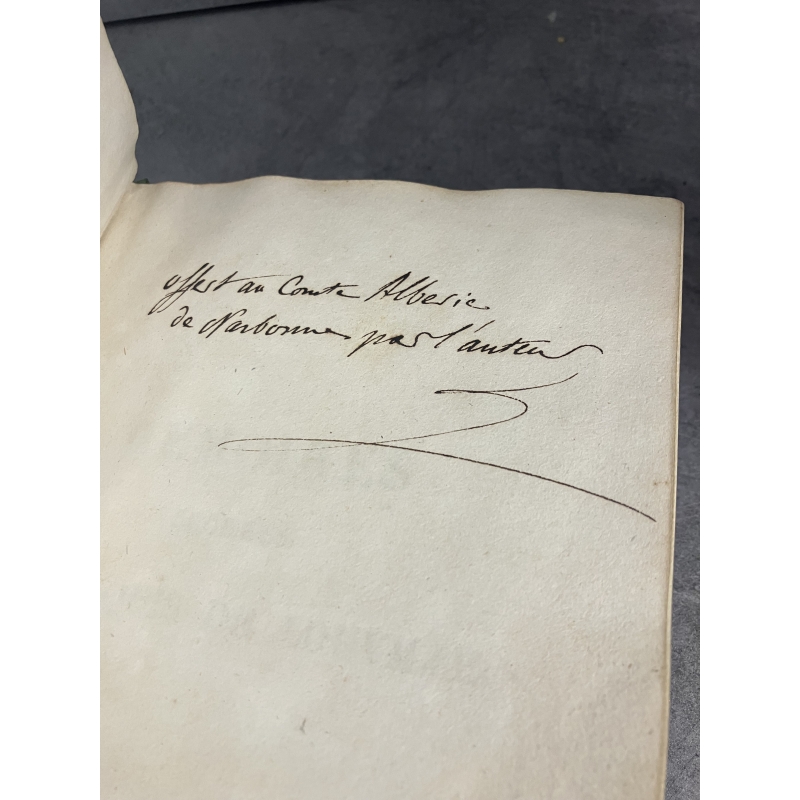 offert au Comte Alberic
de Narbonne par l'auteur